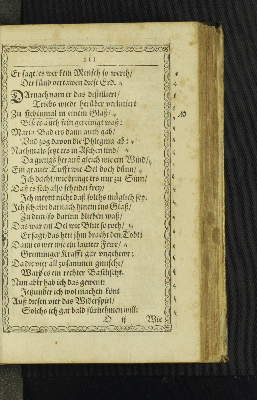 211
Er sagt/es wer kein Mensch so werth/
Der künd vertawen diese Erd.
DArnach nam er das distilliert/
Triebs wiedr herüber verlutiert
Zu siebenmal in einem Glaß/
Biß es auch sein gereinigt waß:
Maria Bad ers dann auch gab/
Und zog davon die Phlegma ab:
Nachmals setzt ers in Aschen sind/
Da giengs herauß gleich wie ein Wind/
Ein grauer Lufft wie Oel doch dünn/
Ich dacht/wie bringt ers nur zu Sinn/
Daß es sich also scheidet frey/
Ich meynt nicht daß solchs müglich sey.
Ich schrieb darnach hinein ins Glaß/
Zu dem/so darinn blieben waß/
Das war ein Oel wie Blut so roth/
Er sagt/das hett ihm bracht den Todt/
Dann es wer wie ein lauter Fewr/
Grimmiger Krafft gar ungehewr:
Da die vier all zusammen gmischt/
Waß es ein rechter Basilischt.
Nun aber hab ich das gewert
Jetzunder ich wol machen könt
Auß diesen vier das Widerspiel/
Solchs ich gar bald fürnehmen will:
O ij Wie